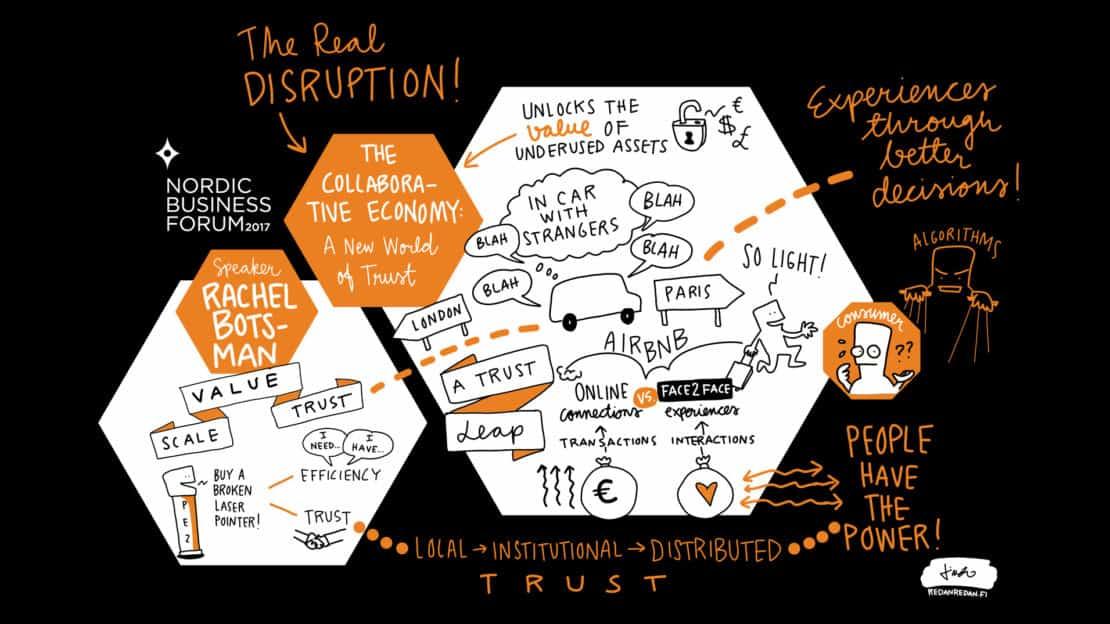 The Real
DISRUPTION!
NORDIC
BUSINESS
FORUM2017
THE
COLLABORA-
TIVE ECONOMY:
A New World
of Trust
Speaker
RACHEL
BOTS-
MAN
VALUE
TRUST
SCALE
I
NEED...
I
HAVE...
EFFICIENCY
BUY A
BROKEN
LASER
POINTER!
PEZ
TRUST
UNLOCKS THE
value OF
UNDERUSED ASSETS
€
$
£
IN CAR
WITH
STRANGERS
BLAH
BLAH
BLAH
BLAH
LONDON
PARIS
SO LIGHT!
AIRBNB
A TRUST
Leap
ONLINE
connections
VS.
FACE2FACE
experiences
TRANSACTIONS
INTERACTIONS
€
Experiences
through
better
decisions!
ALGORITHMS
CONSUMER
??
PEOPLE
HAVE
THE
POWER!
LOCAL → INSTITUTIONAL → DISTRIBUTED
TRUST
REDANREDAN.FI